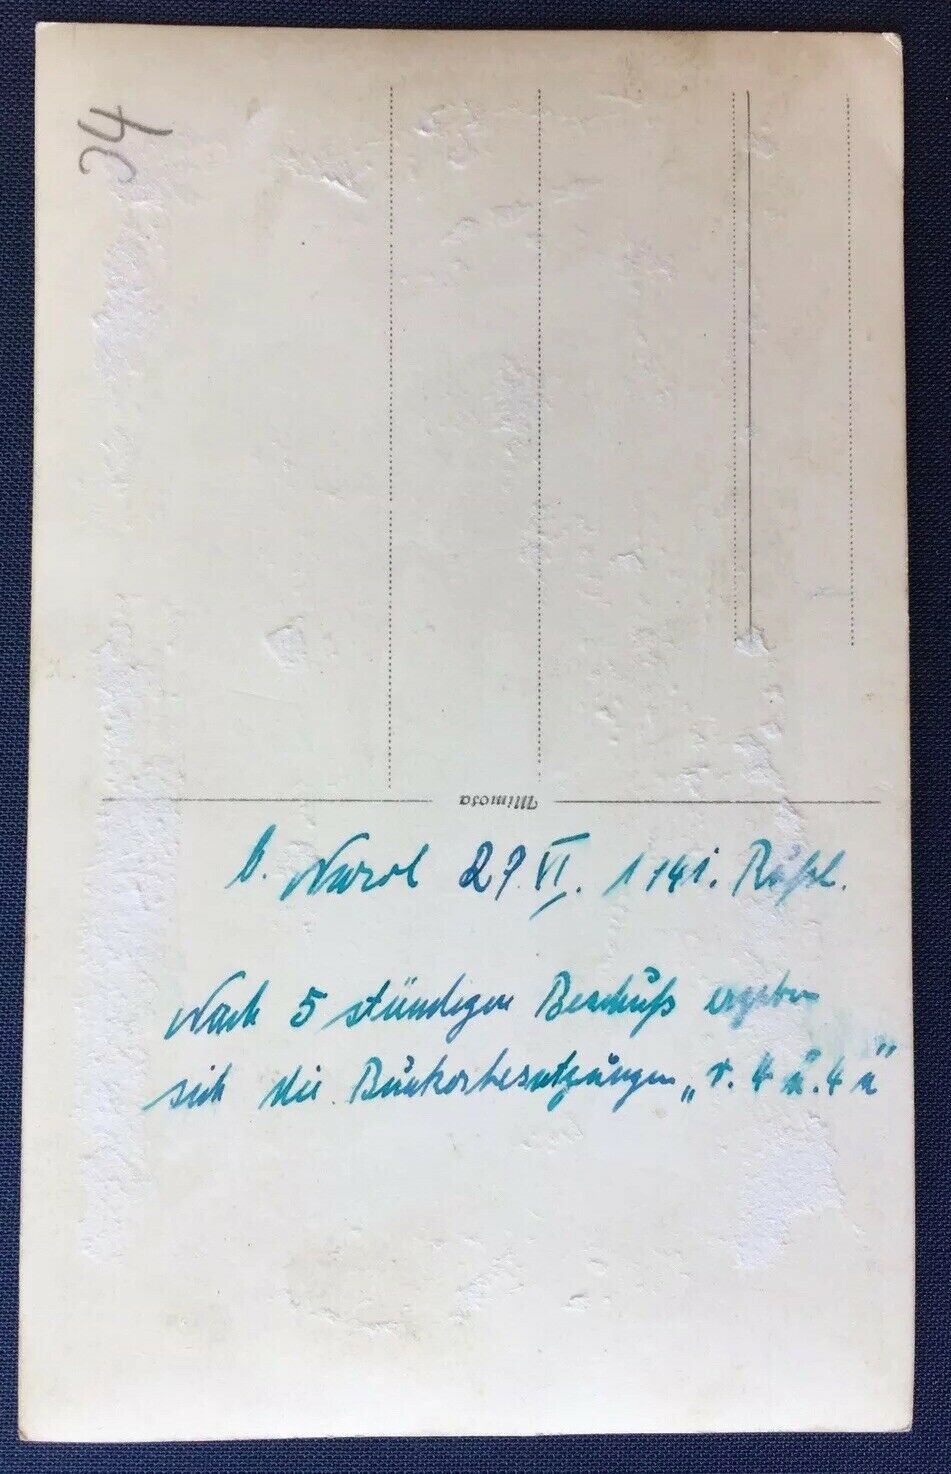 34
Mimosa
b. Narol 27. VI. 1941. Rußl.
Nach 5 stündigen Beschuß ergeben
sich die Bunkerbesatzungen „v. 4 u. 4a"